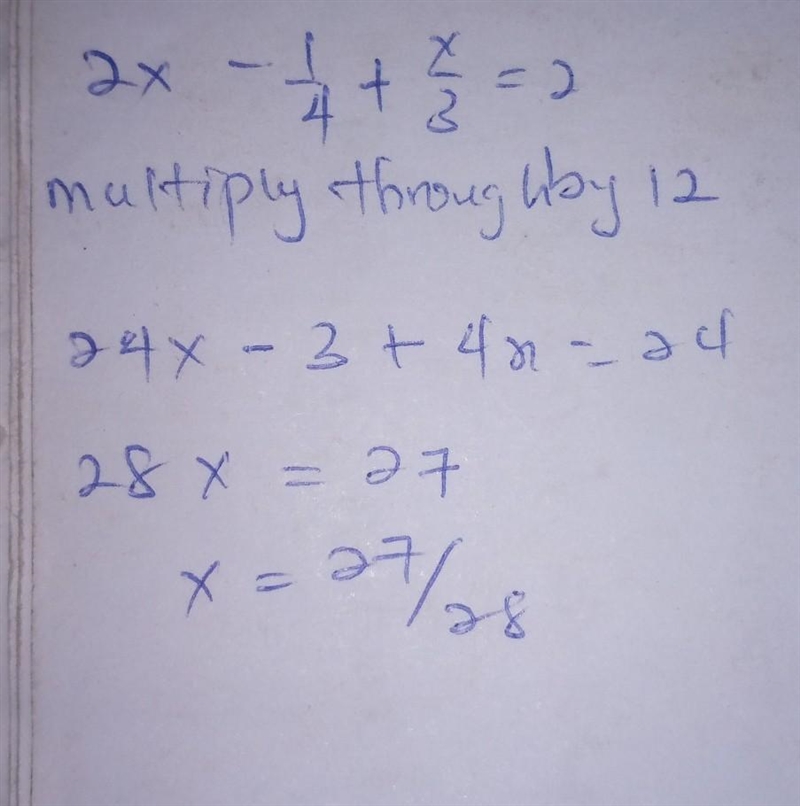 2x - 1/4 + x/3 = 2
multiply through by 12
24x - 3 + 4x = 24
28x = 27
x = 27/28